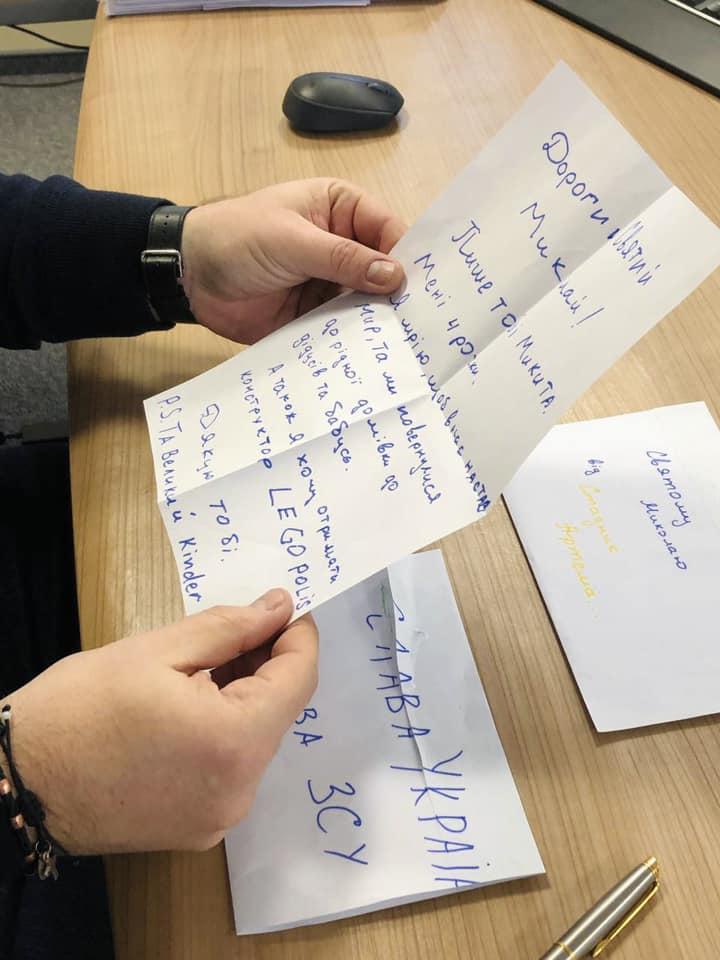 Дороги Святий
Миклай!
Пише тоі Микита.
Мені 4 роки.
Я мрію щов війна настав
мир, та ми повернулися
до рідної домівки до
дідусів та бабусь.
А також я хочу отримати
конструктор LEGOpolis
Дякую тобі.
P.S. Та великий Kinder
Святому
Миколаю
від Спадник
Артема...
СЛАВА УКРАЇ
ВА ЗСУ